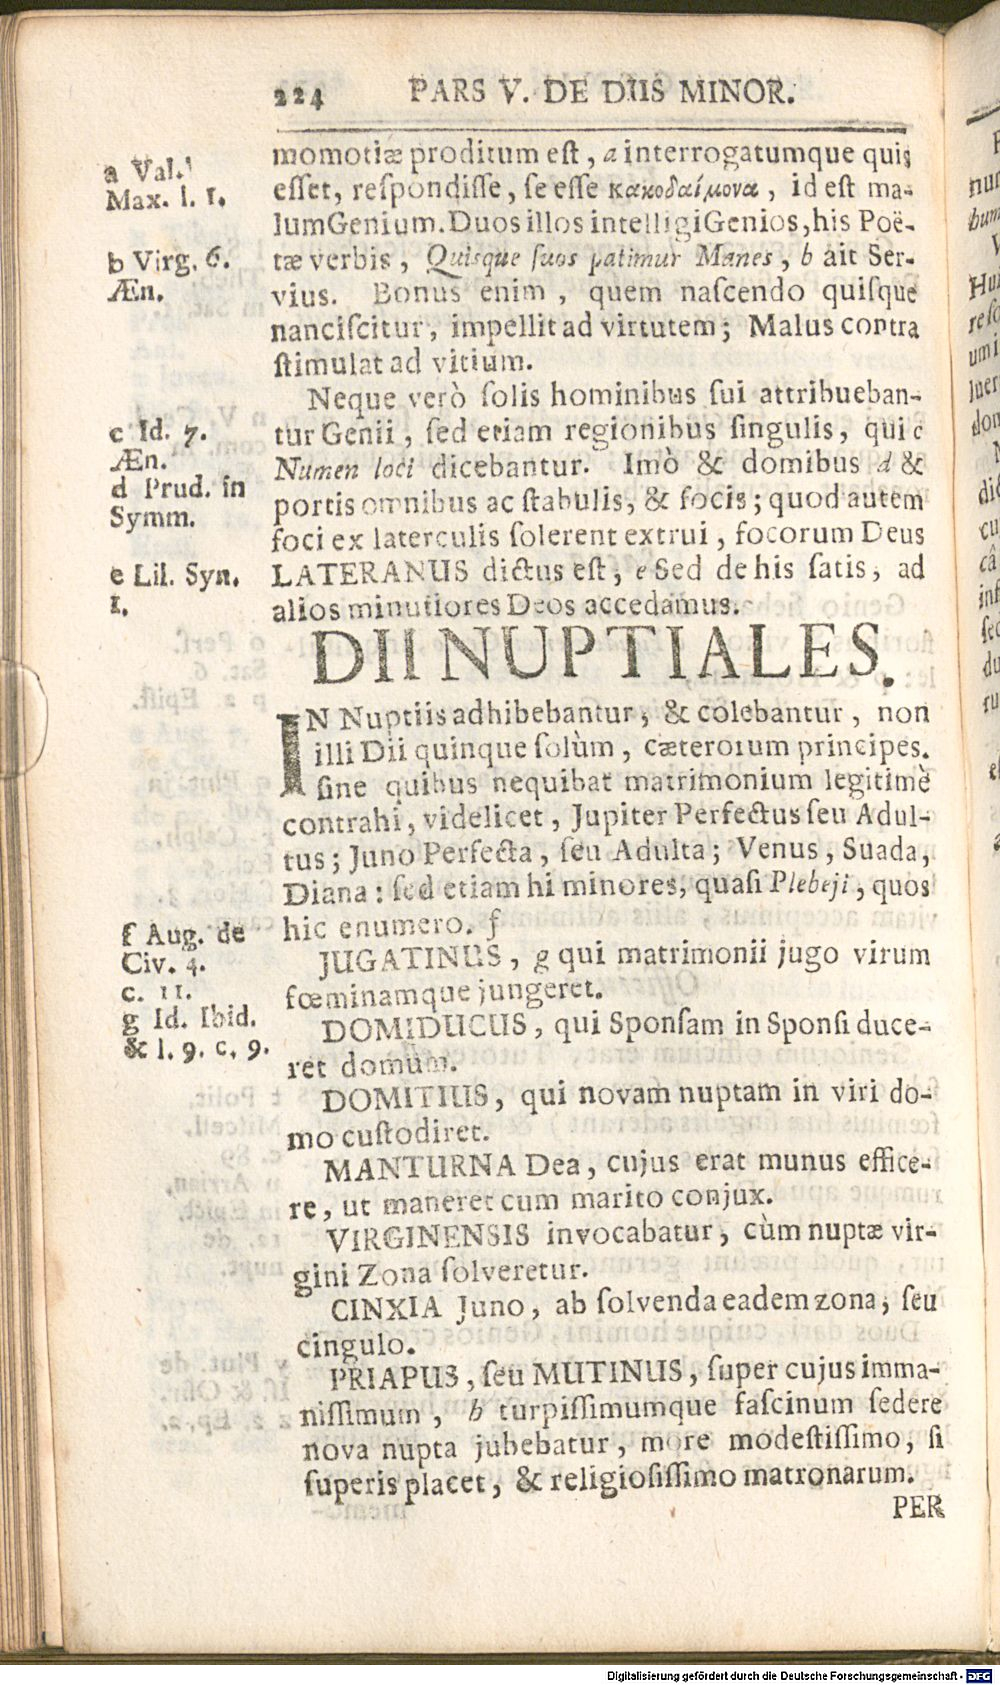 224 PARS V. DE DIIS MINOR.
momotiæ proditum est, a interrogatumque quis
esset, respondisse, se esse κακοδαίμονα, id est ma-
lum Genium. Duos illos intelligi Genios, his Poë-
tæ verbis, Quisque suos patimur Manes, b ait Ser-
vius. Bonus enim, quem nascendo quisque
nanciscitur, impellit ad virtutem; Malus contra
stimulat ad vitium.
Neque verò solis hominibus sui attribueban-
tur Genii, sed etiam regionibus singulis, qui c
Numen loci dicebantur. Imò & domibus d &
portis omnibus ac stabulis, & focis; quod autem
foci ex laterculis solerent extrui, focorum Deus
LATERANUS dictus est, e Sed de his satis, ad
alios minutiores Deos accedamus.
a Val.
Max. l. 1.
b Virg. 6.
Æn.
c Id. 7.
Æn.
d Prud. in
Symm.
e Lil. Syn.
1.
DII NUPTIALES.
IN Nuptiis adhibebantur, & colebantur, non
illi Dii quinque solùm, cæterorum principes.
sine quibus nequibat matrimonium legitimè
contrahi, videlicet, Jupiter Perfectus seu Adul-
tus; Juno Perfecta, seu Adulta; Venus, Suada,
Diana: sed etiam hi minores, quasi Plebeji, quos
hic enumero. f
JUGATINUS, g qui matrimonii jugo virum
fœminamque jungeret.
DOMIDUCUS, qui Sponsam in Sponsi duce-
ret domum.
DOMITIUS, qui novam nuptam in viri do-
mo custodiret.
MANTURNA Dea, cujus erat munus effice-
re, ut maneret cum marito conjux.
VIRGINENSIS invocabatur, cùm nuptæ vir-
gini Zona solveretur.
CINXIA Juno, ab solvenda eadem zona, seu
cingulo.
PRIAPUS, seu MUTINUS, super cujus imma-
nissimum, h turpissimumque fascinum sedere
nova nupta jubebatur, more modestissimo, si
superis placet, & religiosissimo matronarum.
PER
f Aug. de
Civ. 4.
c. 11.
g Id. Ibid.
& l. 9. c. 9.
Digitalisierung gefördert durch die Deutsche Forschungsgemeinschaft - DFG